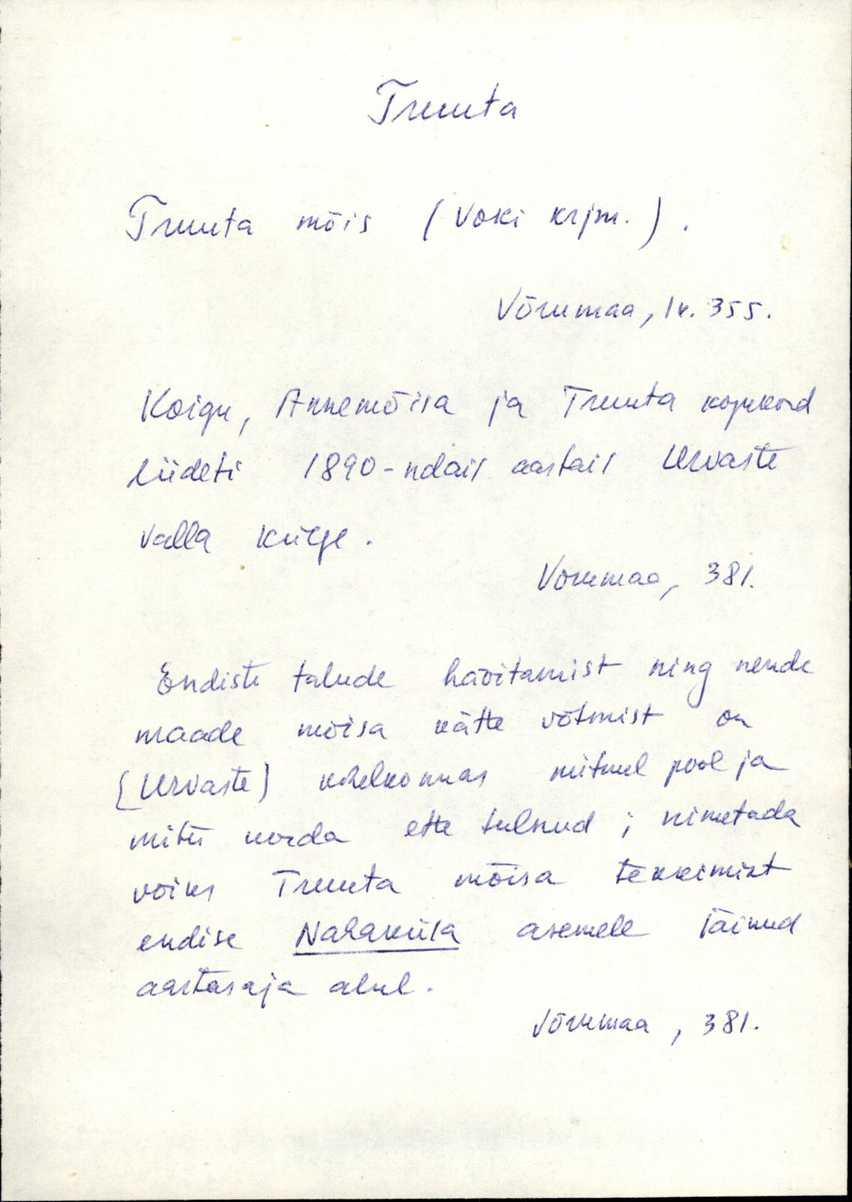 Truuta
Truuta mõis (Voki krjm.).
Võrumaa, lk. 355.
Koigu, Annemõisa ja Truuta kogukond
liideti 1890-ndail aastail Urvaste
valla külge.
Võrumaa, 381.
Endiste talude hävitamist ning nende
maade mõisa kätte võtmist on
[Urvaste] kihelkonnas mitmel pool ja
mitu korda ette tulnud; nimetada
võiks Truuta mõisa tekkimist
endise Nahaküla asemele läinud
aastasaja alul.
Võrumaa, 381.